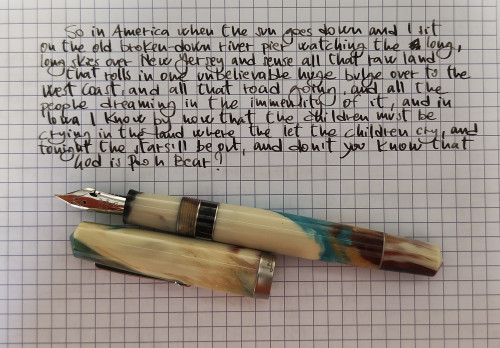 So in America when the sun goes down and I sit
on the old broken-down river pier watching the long,
long skies over New Jersey and sense all that raw land
that rolls in one unbelievable huge bulge over to the
West Coast, and all that road going, and all the
people dreaming in the immensity of it, and in
Iowa I know by now that the children must be
crying in the land where the let the children cry, and
tonight the stars'll be out, and don't you know that
God is Pooh Bear?